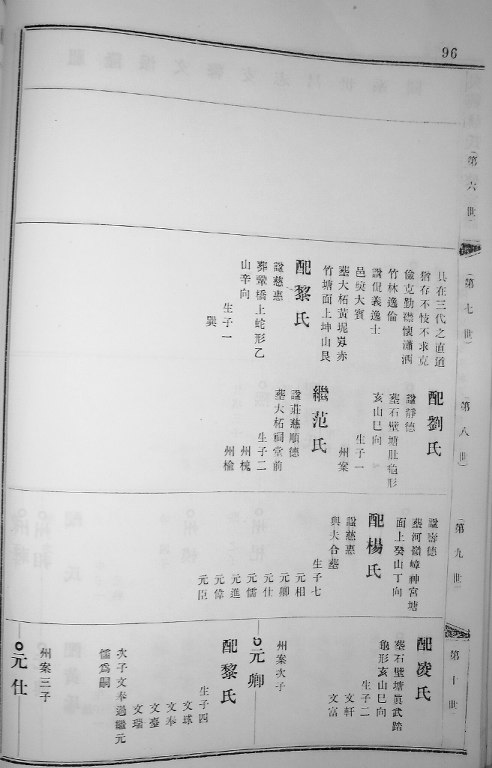 96
第六世
第七世
具在三代之直道
猶存不忮不求克
儉克勤襟懷瀟洒
竹林逸倫
諡倪義逸士
邑獎大賓
墓大柘黃坭嶺赤
竹塘面上坤山艮
配黎氏
諡慈惠
葬鸞橋上蛇形乙
山辛向
生子一
巽
第八世
配劉氏
諡靜德
墓石壁塘肚龜形
亥山巳向
生子一
州案
繼范氏
諡莊慈順德
墓大柘祠堂前
生子二
州槐
州檜
第九世
面上癸山丁向
配楊氏
諡慈惠
與夫合墓
生子七
元相
元卿
元仕
元儒
元進
元偉
元臣
第十世
配凌氏
墓石壁塘眞武路
龜形亥山巳向
生子二
文軒
文富
州案次子
元卿
配黎氏
生子四
文球
文奉
文臺
文瑞
次子文奉過繼元
儒爲嗣
州案三子
元仕